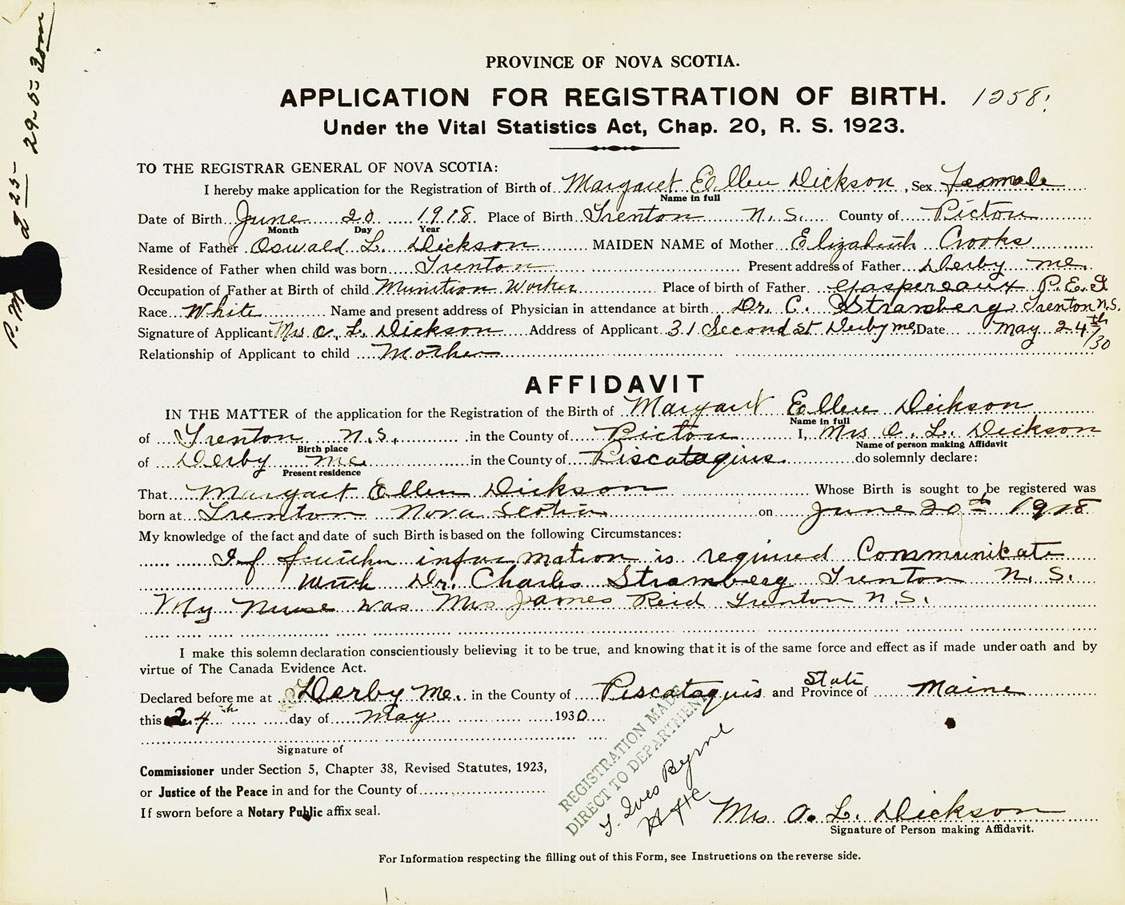 PROVINCE OF NOVA SCOTIA.
APPLICATION FOR REGISTRATION OF BIRTH. 1258.
Under the Vital Statistics Act, Chap. 20, R. S. 1923.
TO THE REGISTRAR GENERAL OF NOVA SCOTIA:
I hereby make application for the Registration of Birth of Margaret Ellen Dickson, Sex Female
Name in full
Date of Birth June 20 1918 Place of Birth Trenton N. S. County of Pictou
Month Day Year
Name of Father Oswald L. Dickson MAIDEN NAME of Mother Elizabeth Crooks
Residence of Father when child was born Trenton Present address of Father Derby Me.
Occupation of Father at Birth of child Munition Worker Place of birth of Father Gaspereaux P.E.I
Race White Name and present address of Physician in attendance at birth Dr. C. Stramberg Trenton N.S.
Signature of Applicant Mrs O. L. Dickson Address of Applicant 31 Second St Derby Me Date May 24th/30
Relationship of Applicant to child Mother
AFFIDAVIT
IN THE MATTER of the application for the Registration of the Birth of Margaret Ellen Dickson
Name in full
of Trenton N.S. in the County of Pictou I, Mrs O. L. Dickson
Birth place Name of person making Affidavit
of Derby Me. in the County of Piscataquis do solemnly declare:
Present residence
That Margaret Ellen Dickson Whose Birth is sought to be registered was
born at Trenton Nova Scotia on June 20th 1918
My knowledge of the fact and date of such Birth is based on the following Circumstances:
If further information is required Communicate
with Dr. Charles Stramberg Trenton N. S.
My Nurse was Mrs James Reid Trenton N.S.
I make this solemn declaration conscientiously believing it to be true, and knowing that it is of the same force and effect as if made under oath and by
virtue of The Canada Evidence Act.
State
Declared before me at Derby Me. in the County of Piscataquis and Province of Maine
this 24th day of May 1930
Signature of
Commissioner under Section 5, Chapter 38, Revised Statutes, 1923,
or Justice of the Peace in and for the County of
If sworn before a Notary Public affix seal.
REGISTRATION MADE
DIRECT TO DEPARTMENT
J. Ives Byrne
Mrs O. L. Dickson
Signature of Person making Affidavit.
For Information respecting the filling out of this Form, see Instructions on the reverse side.